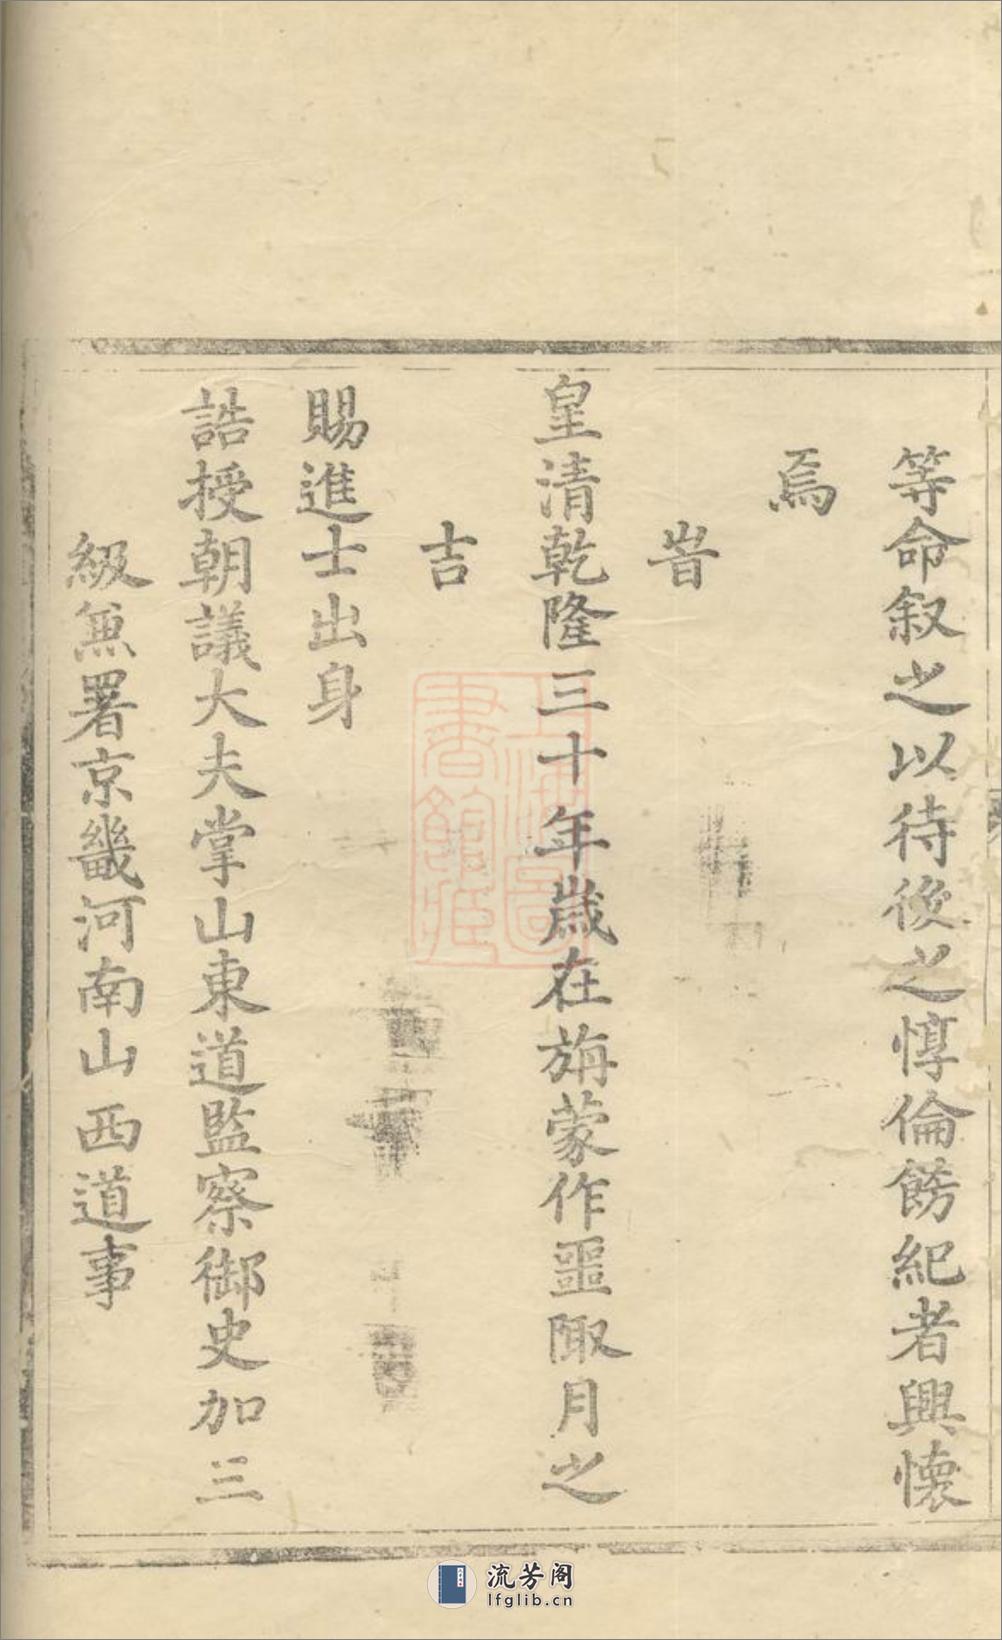 等命叙之以待後之惇倫飭紀者興懷
焉
旹
皇清乾隆三十年歲在旃蒙作噩陬月之
吉
賜進士出身
誥授朝議大夫掌山東道監察御史加三
級兼署京畿河南山西道事
上海圖
書館藏
流芳阁
lfglib.cn